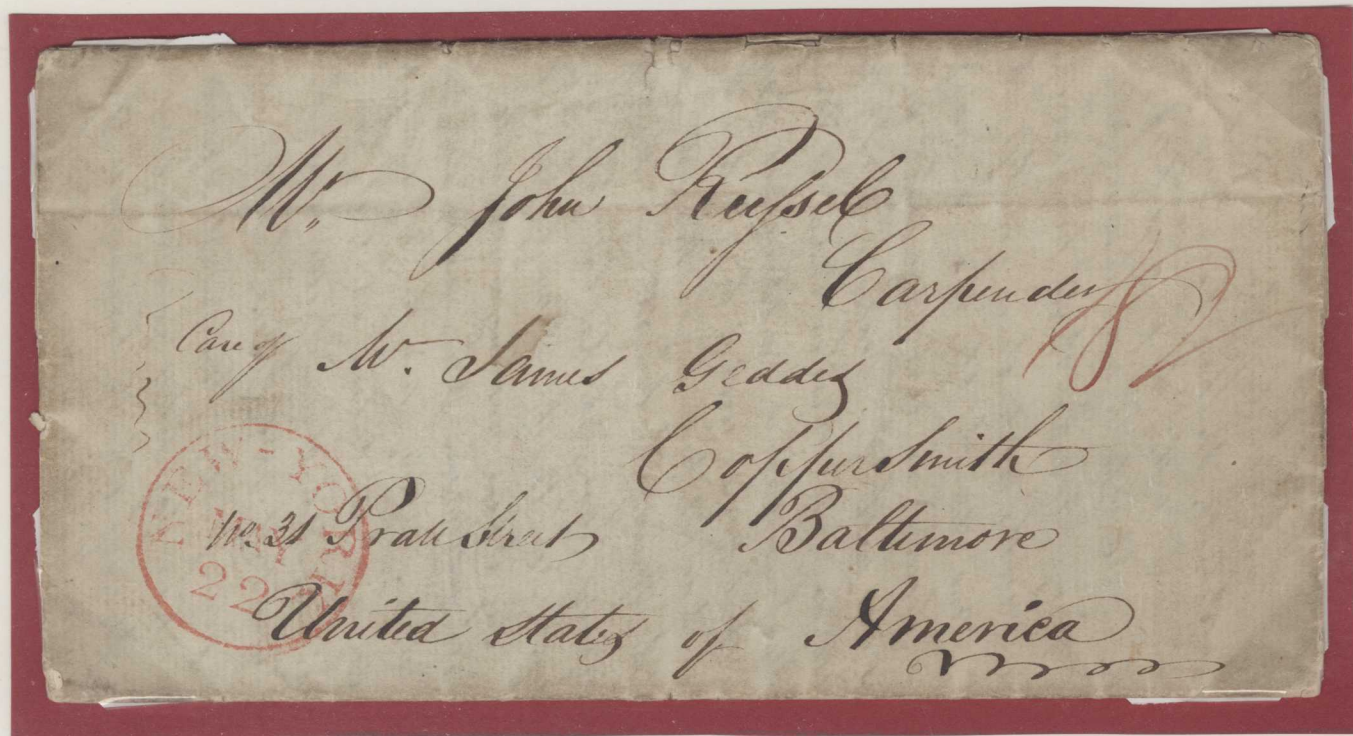 Mr. John Rußel
Carpender
Care of Mr. James Geddes
Coppersmith
No. 31 Pratt Street Baltimore
United States of America
NEW-YORK
22